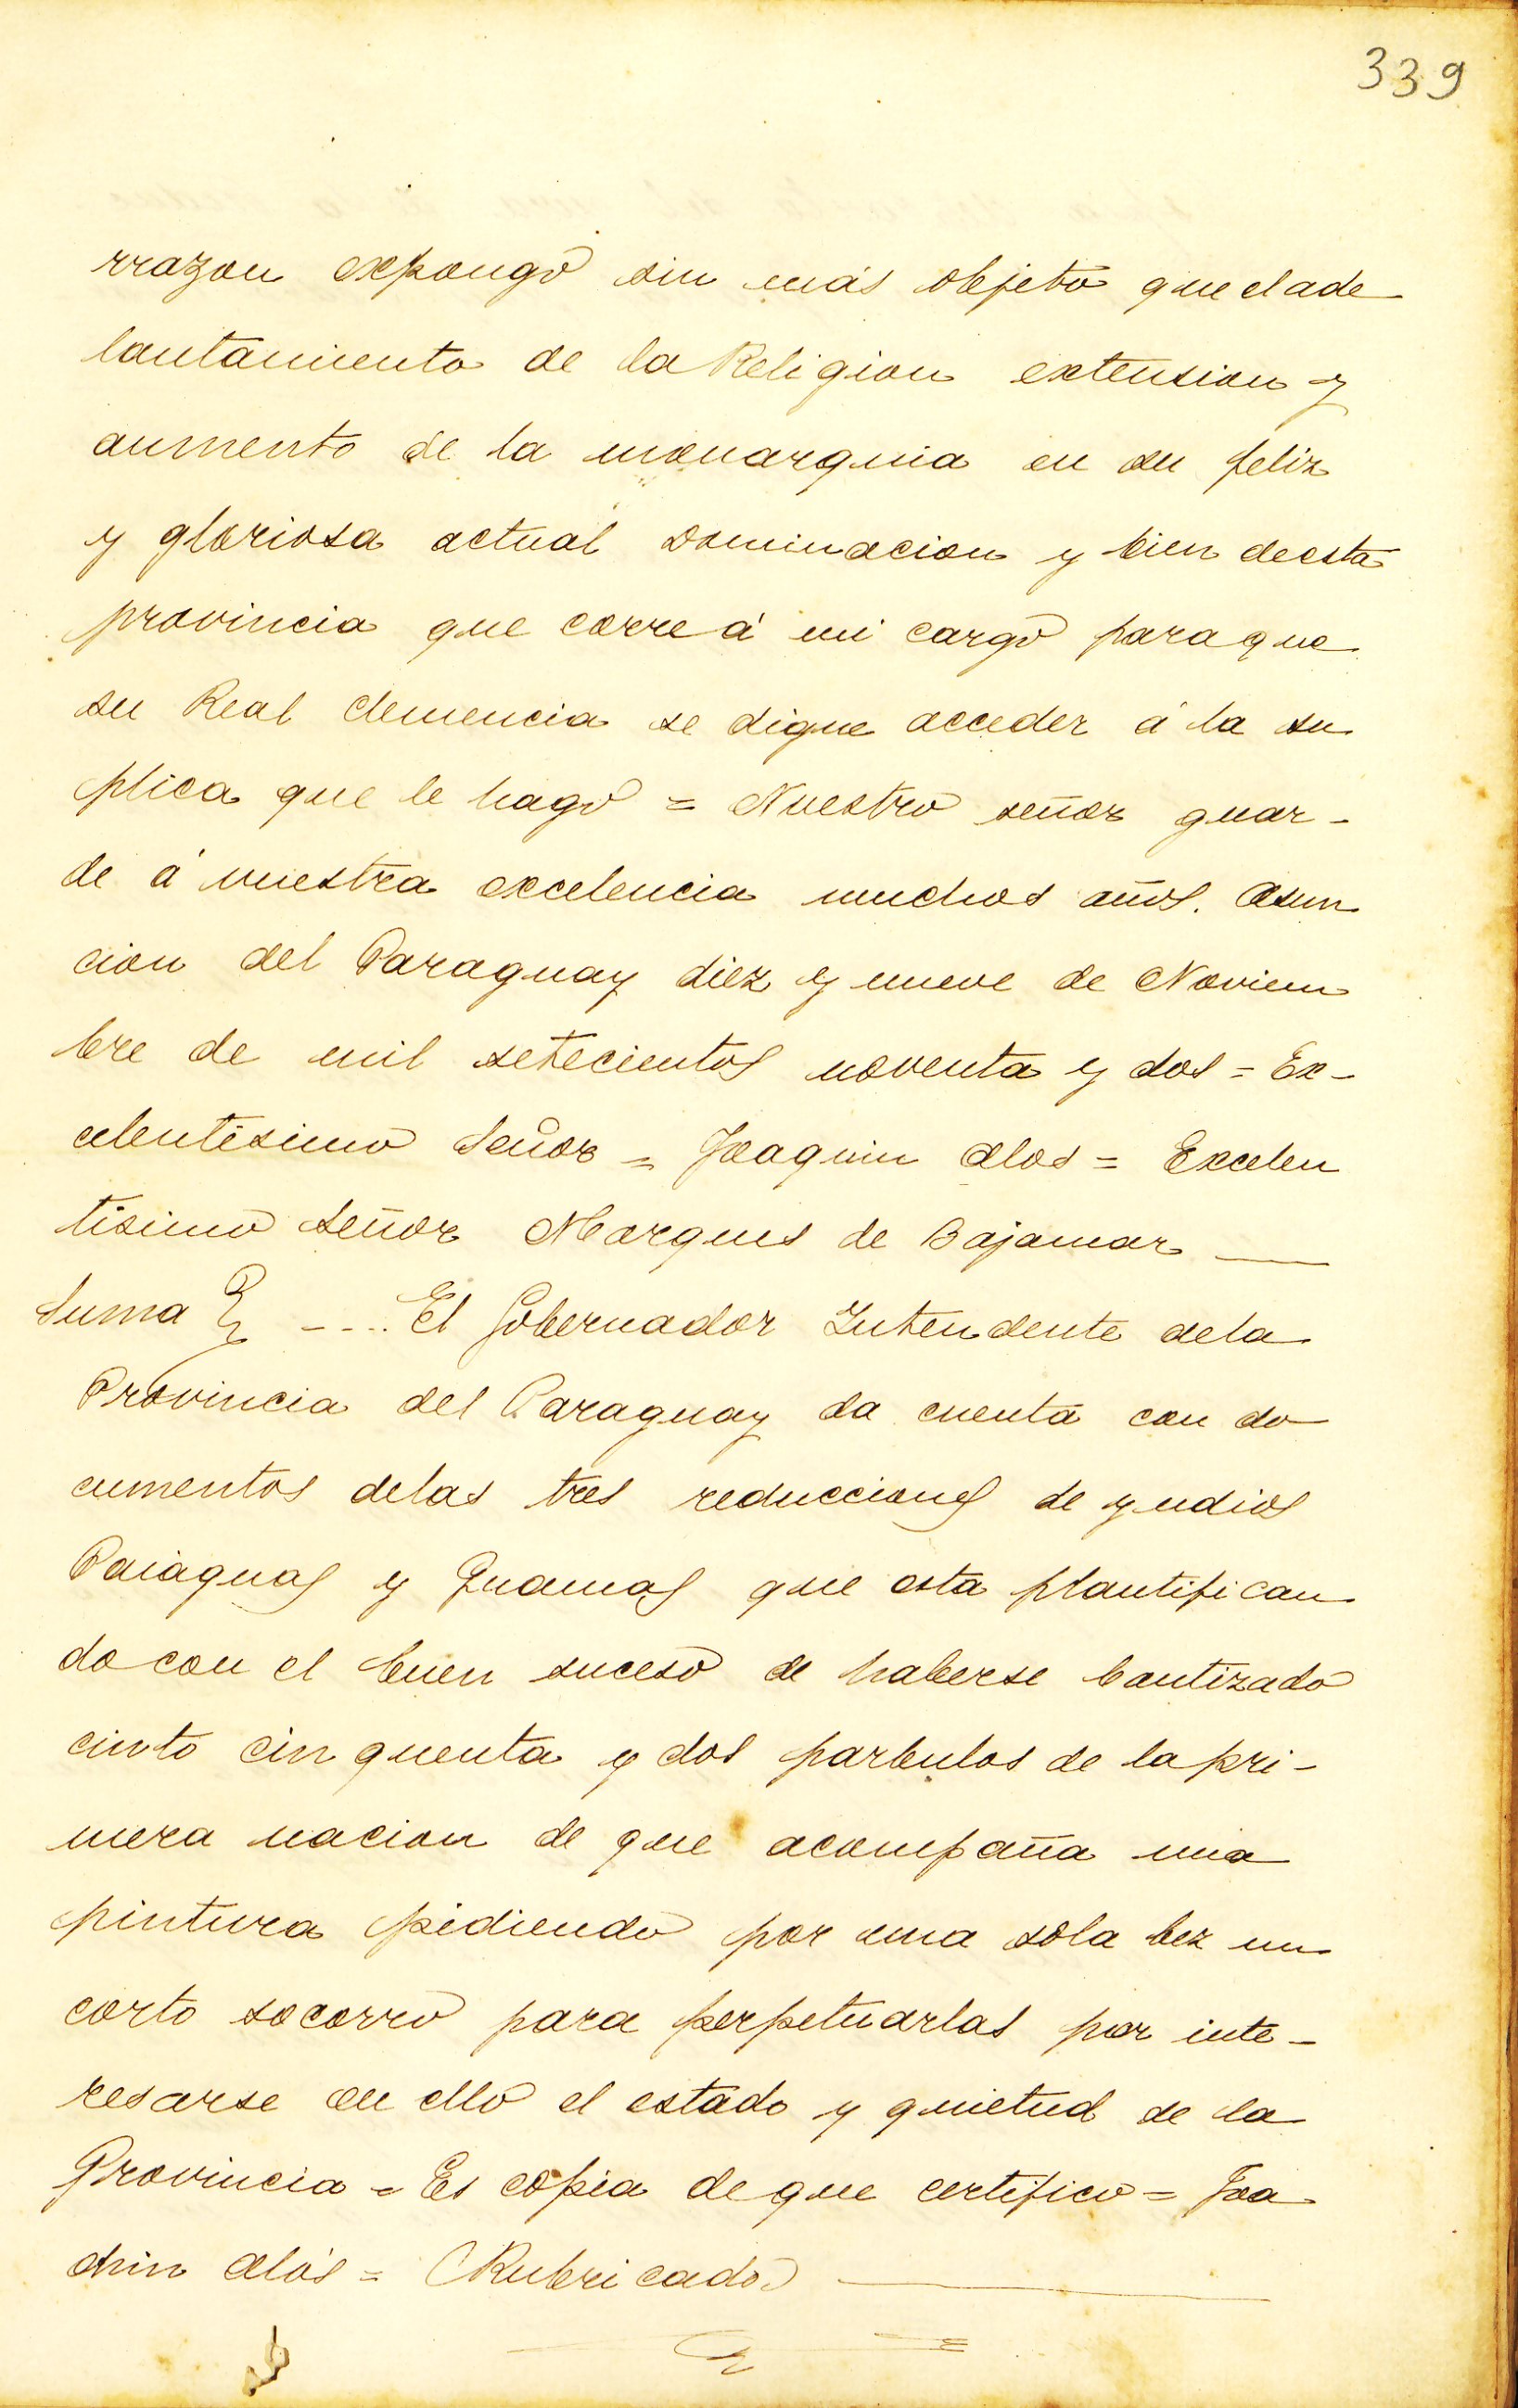 339
rrazon expongo sin más objeto que el ade
lantamiento de la Religion extension y
aumento de la monarquia en su feliz
y gloriosa actual Dominacion y bien de esta
provincia que corre á mi cargo para que
su Real clemencia se digne acceder á la su
plica que le hago = Nuestro señor guar-
de á vuestra excelencia muchos años. Asun
cion del Paraguay diez y nueve de Noviem
bre de mil setecientos noventa y dos = Ex-
celentisimo Señor = Joaquin Alos = Excelen
tisimo Señor Marques de Bajamar
Suma --- El Gobernador Intendente de la
Provincia del Paraguay da cuenta con do
cumentos delas tres reducciones de yndios
Paiaguas y Guamas que esta plantifican
do con el buen suceso de haberse bautizado
ciento cinquenta y dos parbulos de la pri-
mera nacion de que acompaña una
pintura pidiendo por una sola bez un
corto socorro para perpetuarlas por inte-
resarse en ello el estado y quietud de la
Provincia = Es copia de que certifico = Joa
chin Alós = (Rubricado)